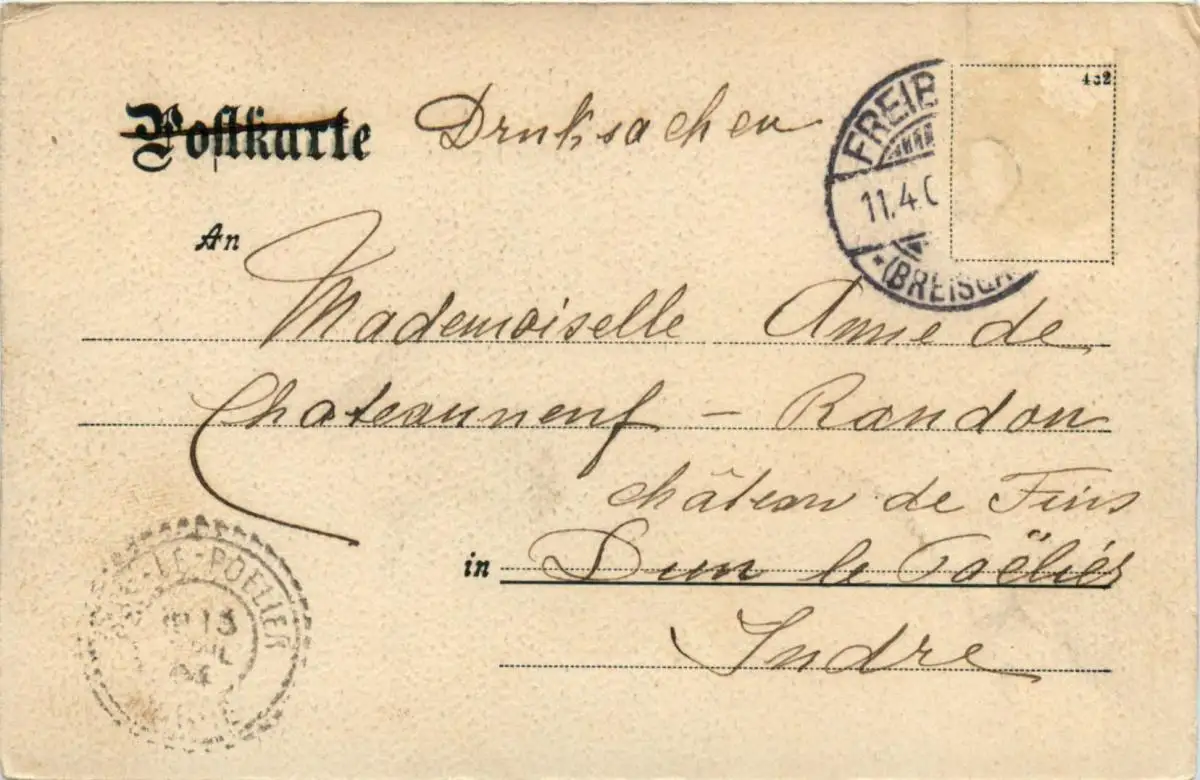 Postkarte Druksachen
432
FREIB
11.4.0
*(BREISG
An
Mademoiselle Anne de
Chateauneuf – Randon
château de Fins
in Dun le Poëlier
Indre
LE-POELIER
13